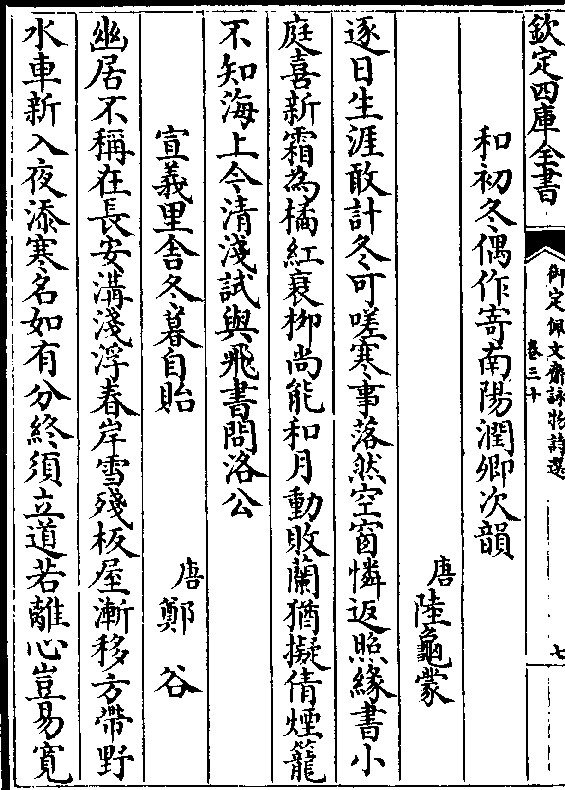 欽定四庫全書
御定佩文齋詠物詩選
卷三十
七
和初冬偶作寄南陽潤卿次韻
唐陸龜蒙
逐日生涯敢計冬可嗟寒事落然空窗憐返照緣書小
庭喜新霜為橘紅衰柳尚能和月動敗蘭猶擬倩煙籠
不知海上今清淺試與飛書問洛公
宣義里舍冬暮自貽
唐鄭谷
幽居不稱在長安溝淺浮春岸雪殘板屋漸移方帶野
水車新入夜添寒名如有分終須立道若離心豈易寬